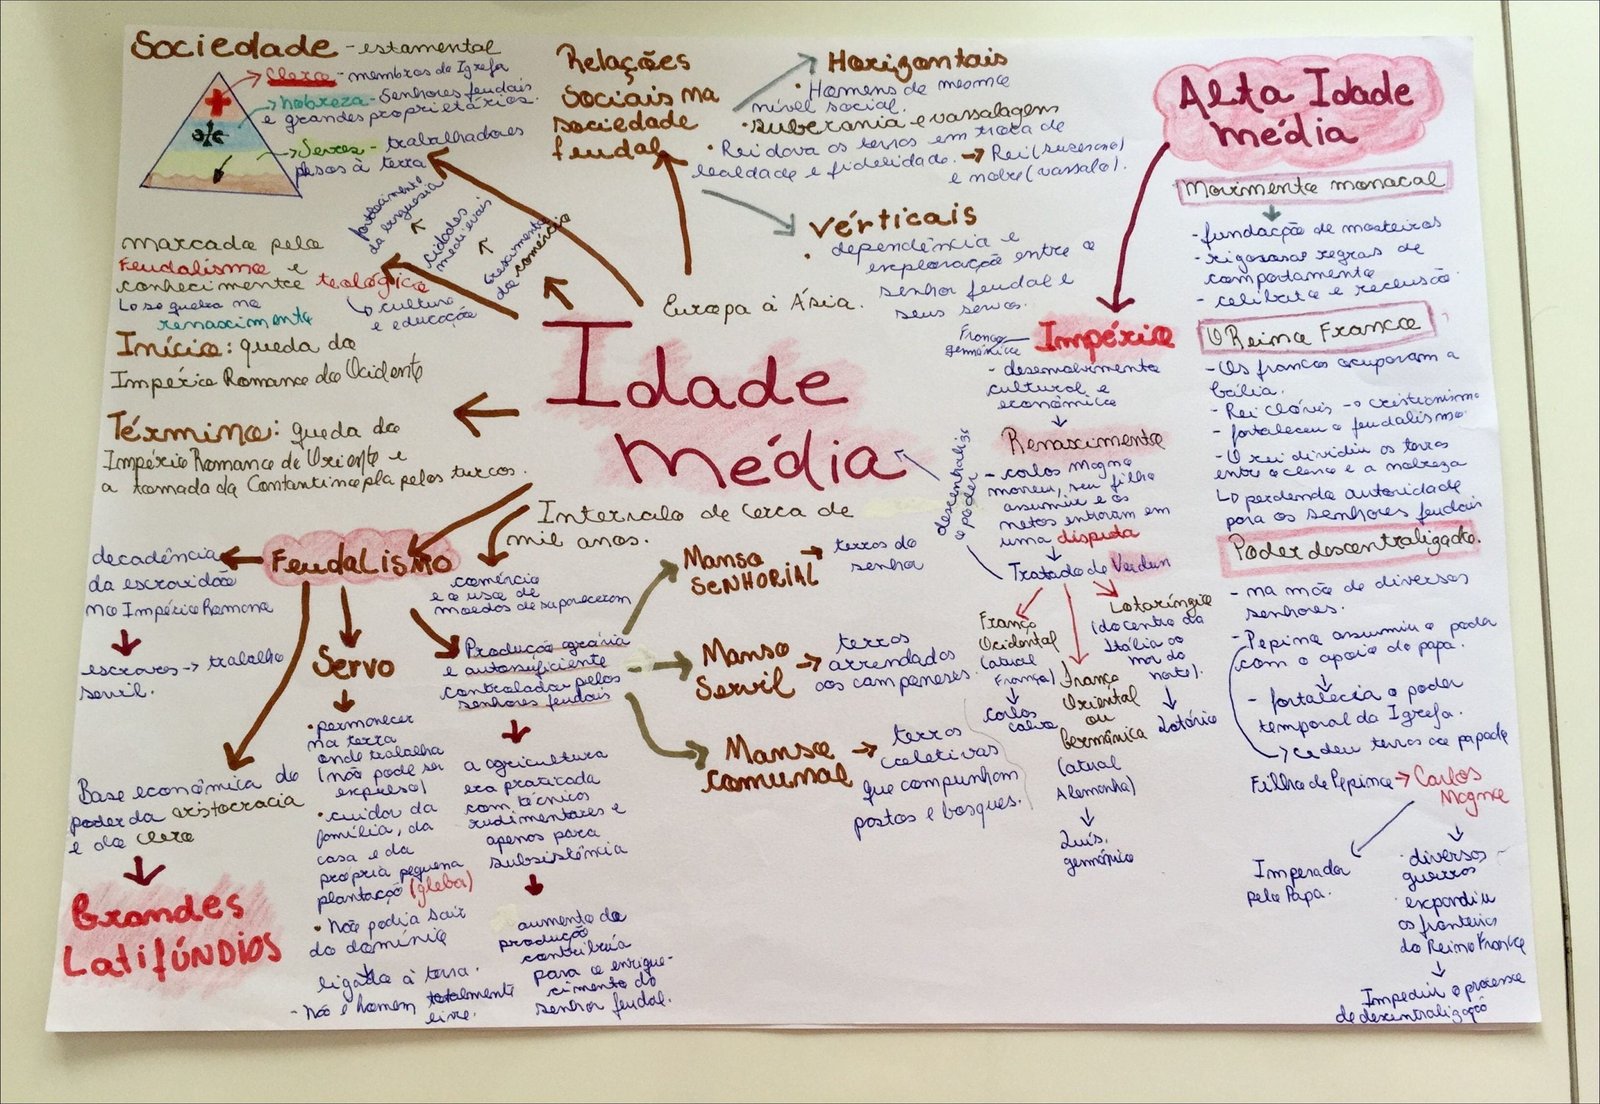 Sociedade - estamental
Clero - membros da Igreja
Nobreza - Senhores feudais
e grandes proprietários.
Servos - trabalhadores
presos à terra
fortalecimento
da burguesia
cidades
medievais
crescimento
do comércio
marcada pelo
Feudalismo e
conhecimento teológico
↳ se quebra no
renascimento
↳ cultura
e educação
Início: queda do
Império Romano do Ocidente
Término: queda do
Império Romano do Oriente e
a tomada da Constantinopla pelos turcos.
Relações
Sociais na
sociedade
feudal
Horizontais
• Homens de mesmo
nível social.
• suberania e vassalagem
• Rei dava as terras em troca de
lealdade e fidelidade. → Rei (suserano)
e nobre (vassalo).
Vérticais
• dependência e
exploração entre o
senhor feudal e
seus servos.
Europa à Ásia.
Idade
média
Intervalo de cerca de
mil anos.
Feudalismo
decadência
da escravidão
no Império Romano
escravos → trabalho
servil.
Base econômica do
poder da aristocracia
e do clero
Grandes
Latifúndios
Servo
• permanecer
na terra
onde trabalha
(não pode ser
expulso)
• cuidar da
família, da
casa e da
própria pequena
plantação (gleba)
• Não podia sair
do domínio
ligado à terra.
- Não é homem totalmente
livre.
comércio
e o uso de
moedas desapareceram
Produção agrária
e autossuficiente
controlada pelos
senhores feudais
a agricultura
era praticada
com técnicas
rudimentares e
apenas para
subsistência
aumento da
produção
contribuía
para o enrique-
cimento do
senhor feudal.
Manso
SENHORIAL → terras do
senhor
Manso
Servil → terras
arrendadas
aos camponeses.
Manso
comunal → terras
coletivas
que compunham
pastos e bosques.
Alta Idade
média
Império
Franco
germânico
- desenvolvimento
cultural e
econômico
Renascimento
- Carlos Magno
morreu, seu filho
assumiu e os
netos entraram em
uma disputa
Tratado de Verdun
descentraliza
o poder
França
Ocidental
(atual
França)
Carlos
calvo
França
Oriental
ou
Germânica
(atual
Alemanha)
Luís,
germânico
Lotaríngia
(do centro da
Itália ao
mar do
norte).
Lotário
Movimento monacal
- fundação de mosteiros
- rigorosas regras de
comportamento
- celibato e reclusão
O Reino Franco
- Os francos ocuparam a
Gália.
- Rei Clóvis → cristianismo
- fortaleceu o feudalismo.
- O rei dividiu as terras
entre o clero e a nobreza
↳ perdendo autoridade
para os senhores feudais
Poder descentralizado.
- na mão de diversos
senhores.
- Pepino assumiu o poder
com o apoio do papa.
- fortalecia o poder
temporal da Igreja.
→ cedeu terras ao papado
Filho de Pepino → Carlos
Magno
Imperador
pelo Papa.
diversas
guerras
expandiu
as fronteiras
do Reino Franco
Impediu o processo
de descentralização